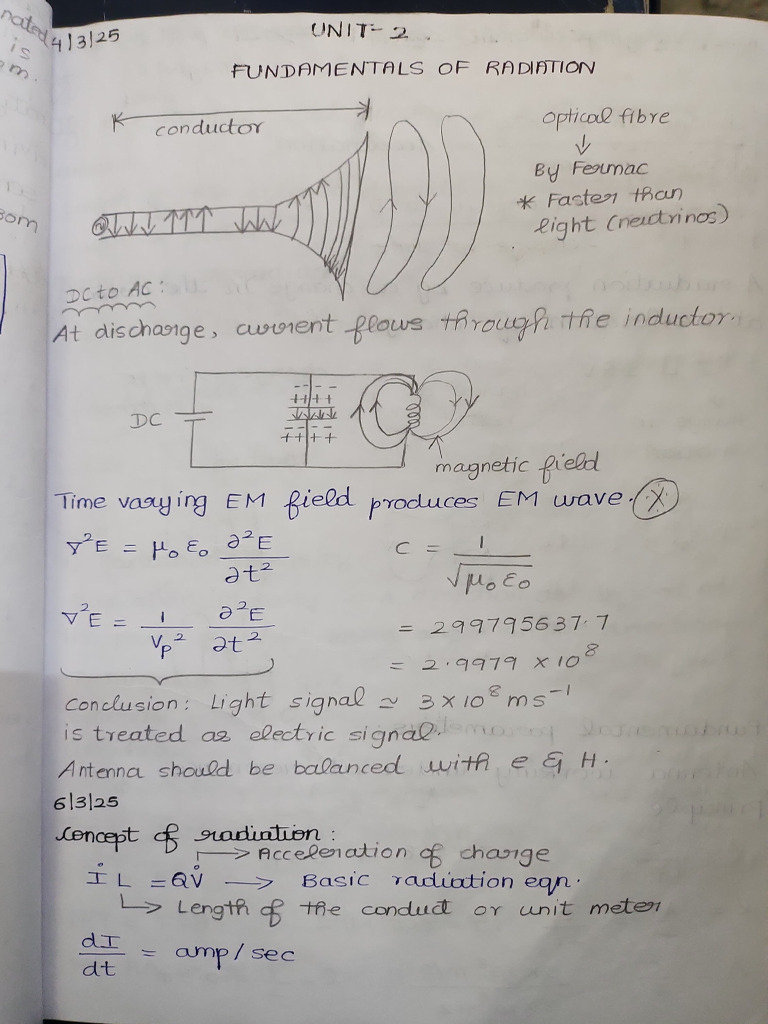 nated
is
m.
som
4/3/25
UNIT- 2.
FUNDAMENTALS OF RADIATION
conductor
optical fibre
↓
By Fermac
* Faster than
light (neutrinos)
DC to AC:
At discharge, current flows through the inductor.
-- --
++ ++
DC
-- --
++ ++
magnetic field
Time varying EM field produces EM wave. (X)
∇²E = μ₀ ε₀ ∂²E/∂t²
C = 1/√μ₀ε₀
∇²E = 1/Vp² ∂²E/∂t²
= 299795637.7
= 2.9979 × 10⁸
Conclusion: Light signal ≃ 3 × 10⁸ ms⁻¹
is treated as electric signal.
Antenna should be balanced with e & H.
6/3/25
Concept of radiation:
→ Acceleration of charge
İ L = QV̇ → Basic radiation eqn.
↳ Length of the conduct or unit meter
dI/dt = amp/sec